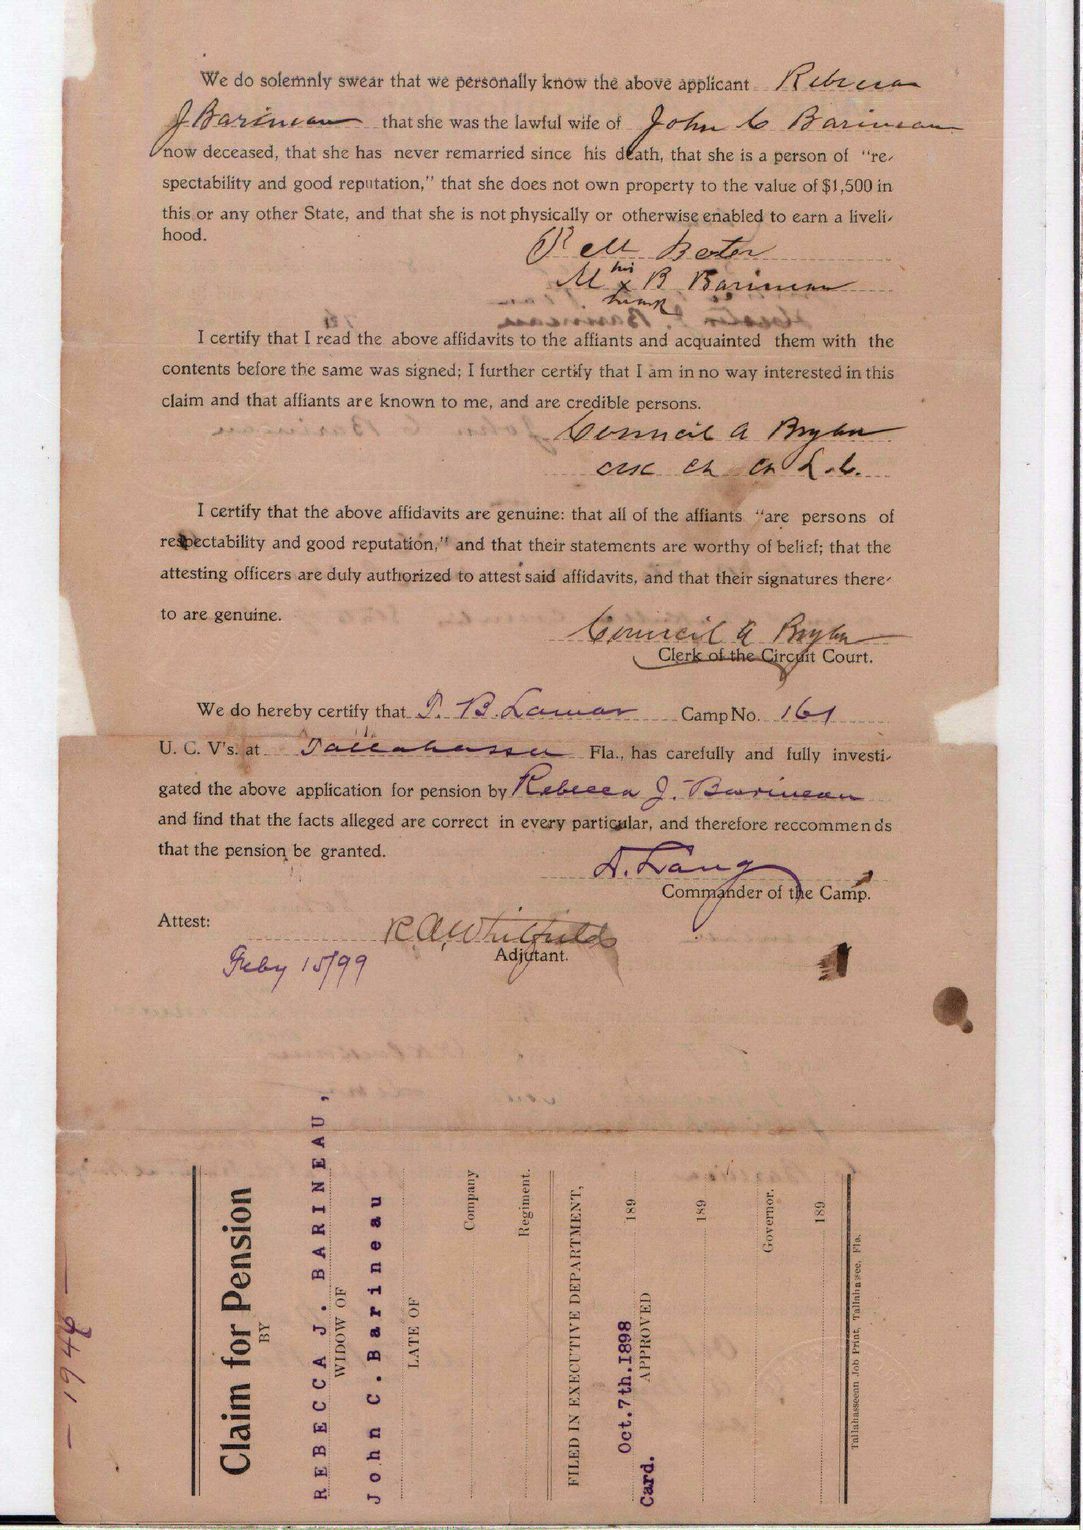 We do solemnly swear that we personally know the above applicant Rebecca
J Barineau that she was the lawful wife of John C Barineau
now deceased, that she has never remarried since his death, that she is a person of "re-
spectability and good reputation," that she does not own property to the value of $1,500 in
this or any other State, and that she is not physically or otherwise enabled to earn a liveli-
hood.
R M
his
M x B Barineau
mark
I certify that I read the above affidavits to the affiants and acquainted them with the
contents before the same was signed; I further certify that I am in no way interested in this
claim and that affiants are known to me, and are credible persons.
Council A Bryan
L.C.
I certify that the above affidavits are genuine: that all of the affiants "are persons of
respectability and good reputation," and that their statements are worthy of belief; that the
attesting officers are duly authorized to attest said affidavits, and that their signatures there-
to are genuine.
Council A Bryan
Clerk of the Circuit Court.
We do hereby certify that T. B. Lamar Camp No. 161
U. C. V's. at Tallahassee Fla., has carefully and fully investi-
gated the above application for pension by Rebecca J. Barineau
and find that the facts alleged are correct in every particular, and therefore reccommends
that the pension be granted.
A. Lang
Commander of the Camp.
Attest:
R. A. Whitfield
Adjutant.
Feby 15/99
Claim for Pension
BY
REBECCA J. BARINEAU,
WIDOW OF
John C. Barineau
LATE OF
Company
Regiment.
FILED IN EXECUTIVE DEPARTMENT,
Oct. 7th. 1898 189
Card. APPROVED
189
Governor.
189
Tallahasseean Job Print, Tallahassee, Fla.